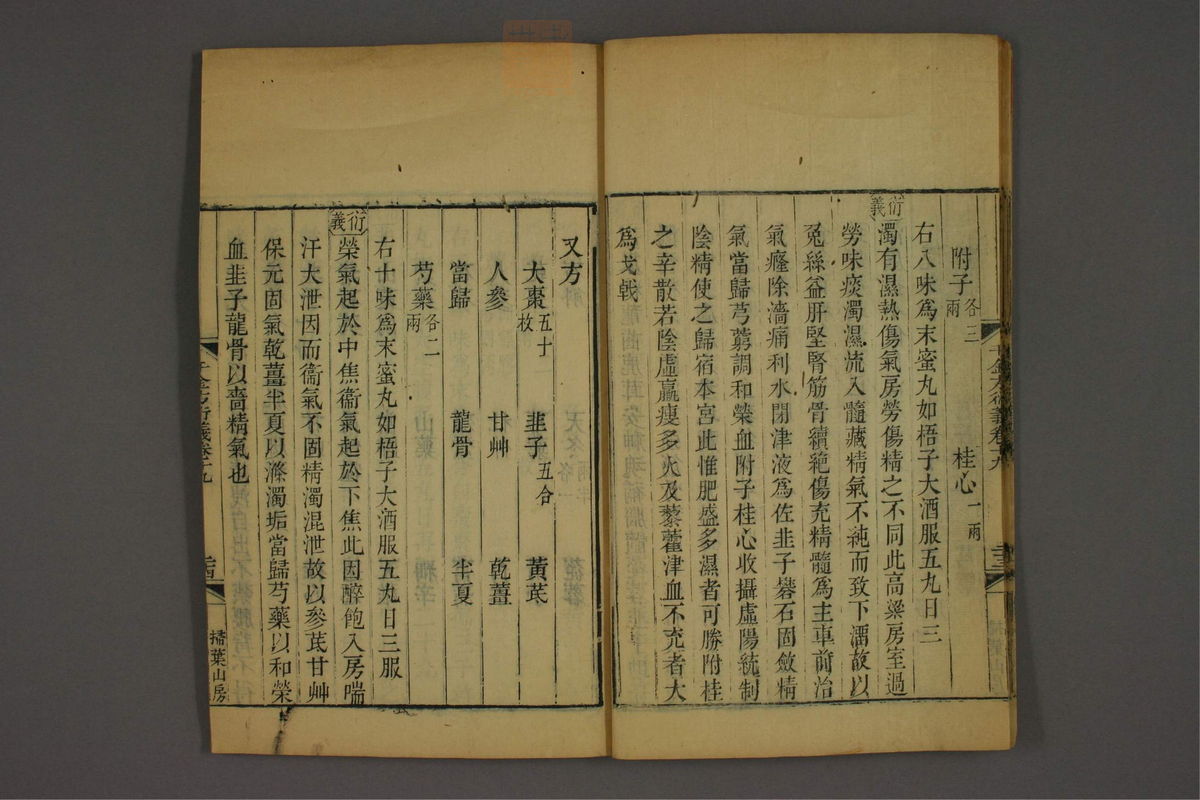 附子各三兩　桂心一兩
右八味爲末蜜丸如梧子大酒服五丸日三
衍義
濁有濕熱傷氣房勞傷精之不同此高粱房室過
勞味痰濁濕流入髓藏精氣不純而致下濁故以
兔絲益肝堅腎筋骨續絕傷充精髓爲主車前治
氣癃除濇痛利水閉津液爲佐韭子礬石固斂精
氣當歸芎藭調和榮血附子桂心收攝虛陽統制
陰精使之歸宿本宮此惟肥盛多濕者可勝附桂
之辛散若陰虛羸瘦多火及藜藿津血不充者大
爲戈戟
又方
大棗五十枚　韭子五合　黃芪
人參　甘艸　乾薑
當歸　龍骨　半夏
芍藥各二兩
右十味爲末蜜丸如梧子大酒服五丸日三服
衍義
榮氣起於中焦衞氣起於下焦此因醉飽入房喘
汗大泄因而衞氣不固精濁混泄故以參芪甘艸
保元固氣乾薑半夏以滌濁垢當歸芍藥以和榮
血韭子龍骨以嗇精氣也
千金方衍義卷十九
掃葉山房